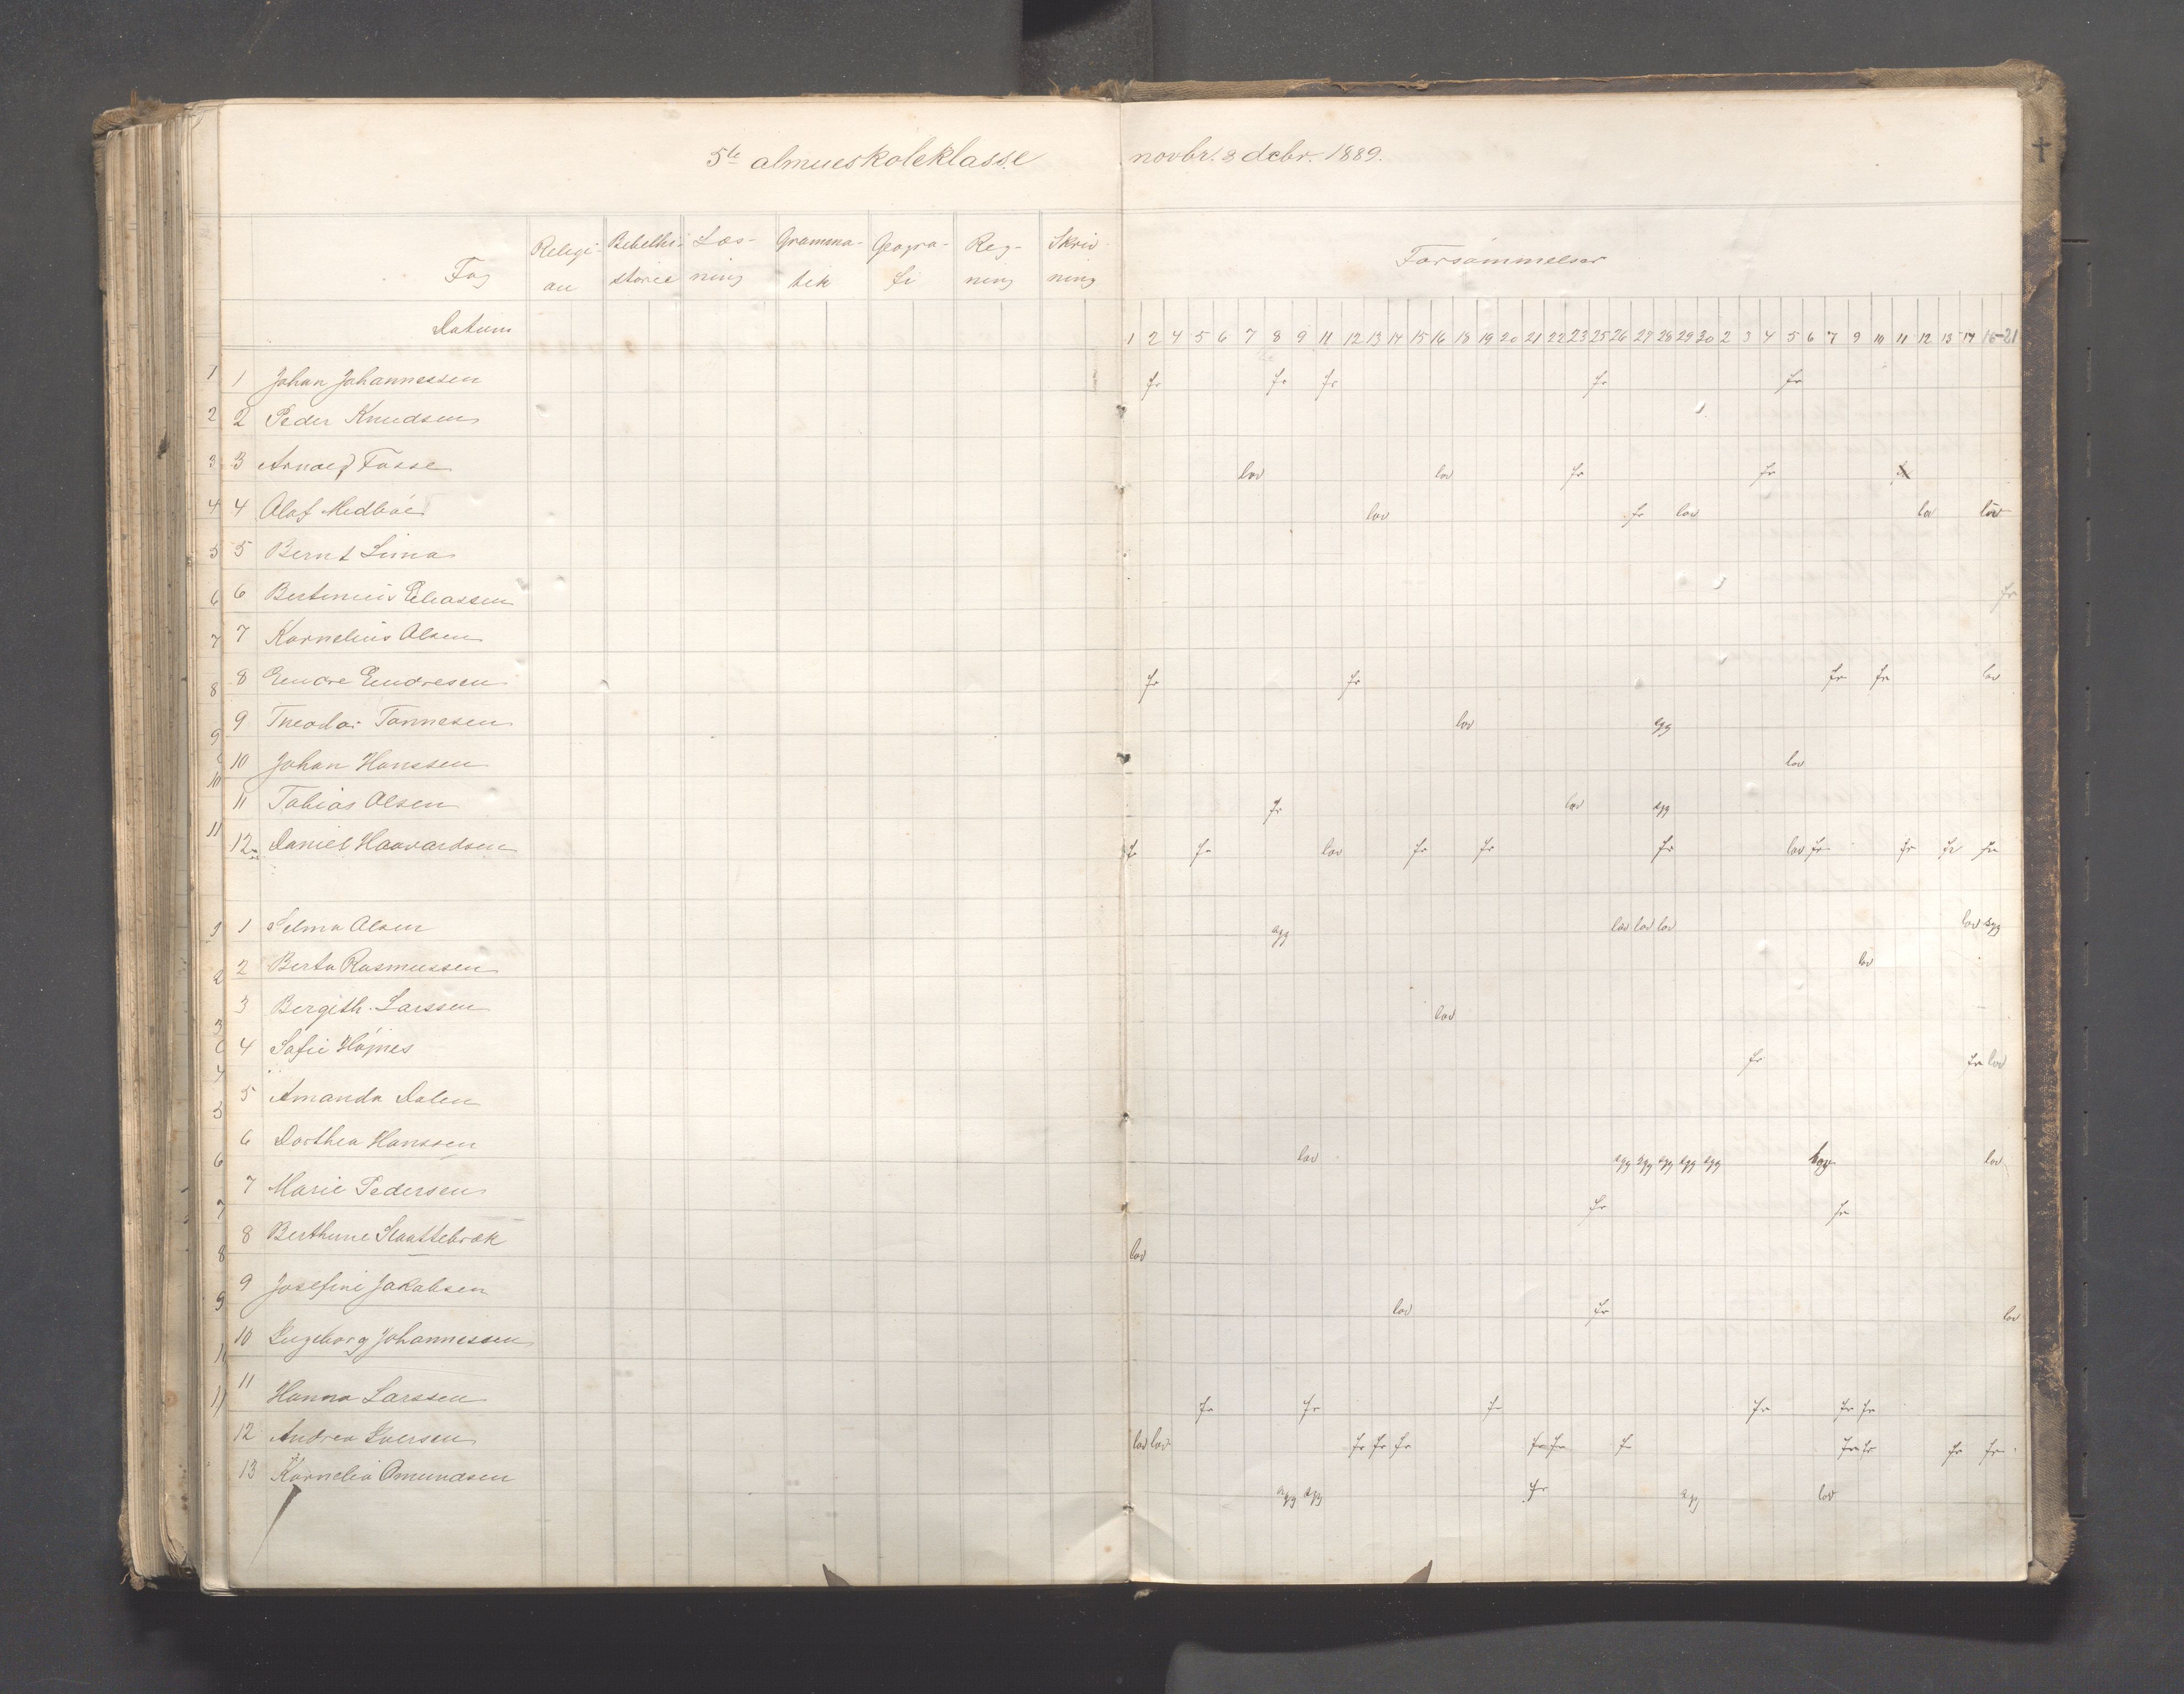 5te almueskoleklasse novbr. & debr. 1889.
Fag Religi- Bibelhi- Læs- Gramma- Geogra- Reg- Skriv- Forsømmelser
on storie ning tik fi ning ning
Datum 1 2 4 5 6 7 8 9 11 12 13 14 15 16 18 19 20 21 22 23 25 26 27 28 29 30 2 3 4 5 6 7 9 10 11 12 13 14 16-21
1 1 Johan Johannessen fr fr fr fr fr
2 2 Peder Knudsen
3 3 Arnold Fosse lov lov fr fr
4 4 Olaf Medbøe lov fr lov lov lov
5 5 Bernt Lima
6 6 Bertinius Eliassen fr
7 7 Kornelius Olsen
8 8 Endre Endresen fr fr fr fr lov
9 9 Theodor Tønnesen lov sgg
10 10 Johan Hanssen lov
11 Tobias Olsen fr lov sgg
11 12 Daniel Haavardsen fr fr lov fr fr fr lov fr fr fr fr
1 1 Selma Olsen sgg lov lov lov lov sgg
2 2 Berta Rasmussen lov
3 3 Bergith Larssen lov
4 4 Sofie Højnes fr fr lov
5 5 Amanda Dalen
6 6 Dorthea Hanssen lov sgg sgg sgg sgg sgg lov
7 7 Marie Pedersen fr fr
8 8 Berthine Slaattebræk lov
9 9 Josefine Jakobsen lov fr lov
10 10 Ingeborg Johannessen
11 11 Hanna Larssen fr fr fr fr fr fr
12 Andrea Iversen lov lov fr fr fr fr fr fr fr fr fr fr
13 Kornelia Omundsen sgg sgg fr sgg lov